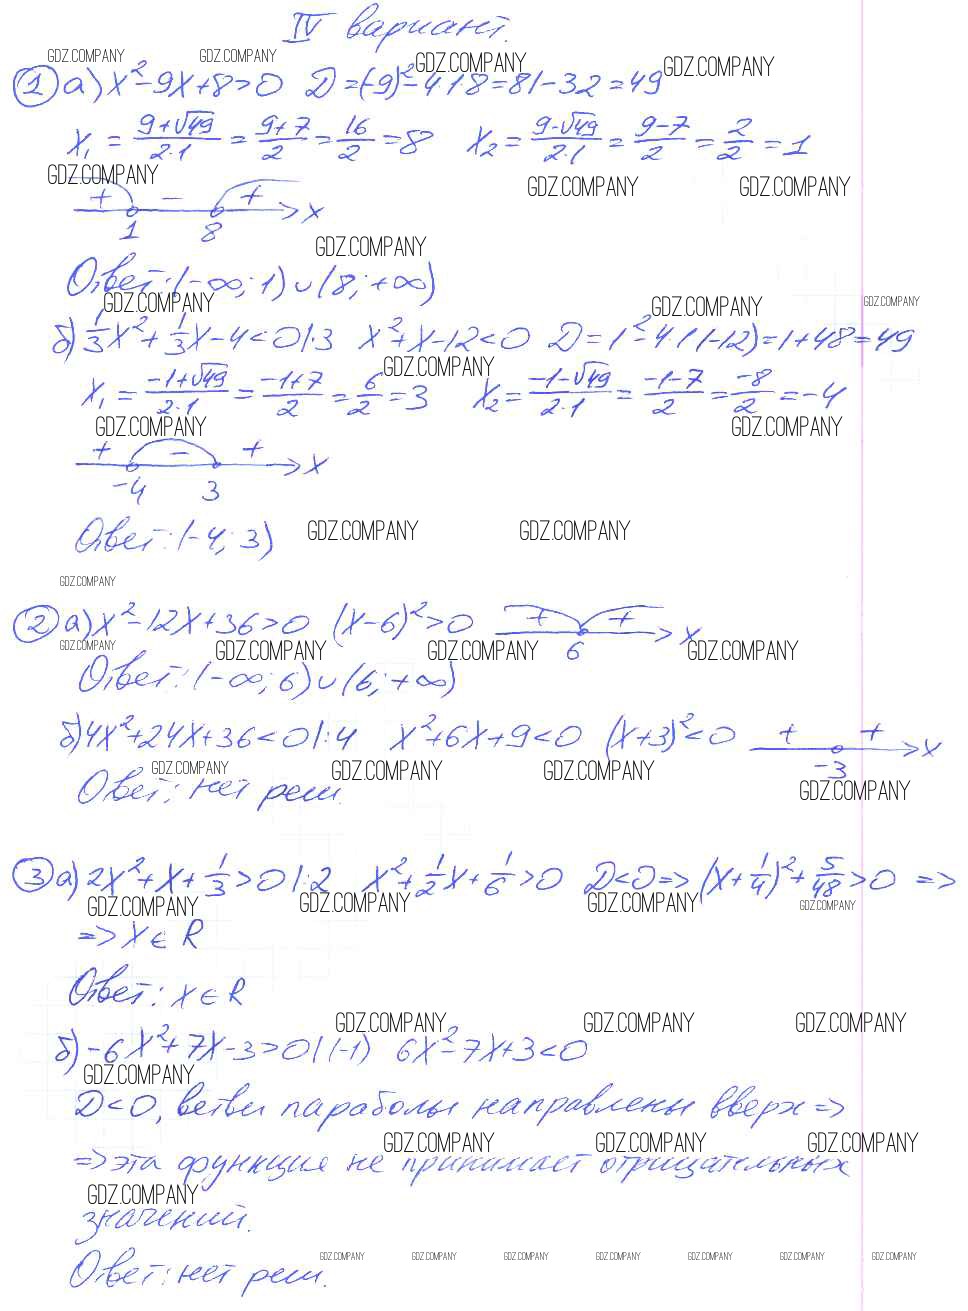 IV вариант.
GDZ.COMPANY GDZ.COMPANY GDZ.COMPANY GDZ.COMPANY
① а) x²-9x+8>0 D=(-9)²-4·1·8=81-32=49
x₁ = (9+√49)/(2·1) = (9+7)/2 = 16/2 = 8 x₂ = (9-√49)/(2·1) = (9-7)/2 = 2/2 = 1
GDZ.COMPANY GDZ.COMPANY GDZ.COMPANY
+ - + x
1 8
GDZ.COMPANY
Ответ: (-∞; 1) ∪ (8; +∞)
GDZ.COMPANY GDZ.COMPANY GDZ.COMPANY
б) 1/3x² + 1/3x - 4 < 0 |·3 x²+x-12<0 D=1²-4·1·(-12)=1+48=49
GDZ.COMPANY
x₁ = (-1+√49)/(2·1) = (-1+7)/2 = 6/2 = 3 x₂ = (-1-√49)/(2·1) = (-1-7)/2 = -8/2 = -4
GDZ.COMPANY GDZ.COMPANY
+ - + x
-4 3
Ответ: (-4; 3) GDZ.COMPANY GDZ.COMPANY
GDZ.COMPANY
② а) x²-12x+36>0 (x-6)²>0 + + x
6
GDZ.COMPANY GDZ.COMPANY GDZ.COMPANY GDZ.COMPANY
Ответ: (-∞; 6) ∪ (6; +∞)
б) 4x²+24x+36<0 |:4 x²+6x+9<0 (x+3)²<0 + + x
-3
GDZ.COMPANY GDZ.COMPANY GDZ.COMPANY GDZ.COMPANY
Ответ: нет реш.
③ а) 2x²+x+1/3>0 |:2 x²+1/2x+1/6>0 D<0 => (x+1/4)²+5/48>0 =>
GDZ.COMPANY GDZ.COMPANY GDZ.COMPANY GDZ.COMPANY
=> x ∈ R
Ответ: x ∈ R
GDZ.COMPANY GDZ.COMPANY GDZ.COMPANY
б) -6x²+7x-3>0 |(-1) 6x²-7x+3<0
GDZ.COMPANY
D<0, ветви параболы направлены вверх =>
GDZ.COMPANY GDZ.COMPANY GDZ.COMPANY
=> эта функция не принимает отрицательных
GDZ.COMPANY
значений.
GDZ.COMPANY GDZ.COMPANY GDZ.COMPANY GDZ.COMPANY GDZ.COMPANY GDZ.COMPANY GDZ.COMPANY
Ответ: нет реш.